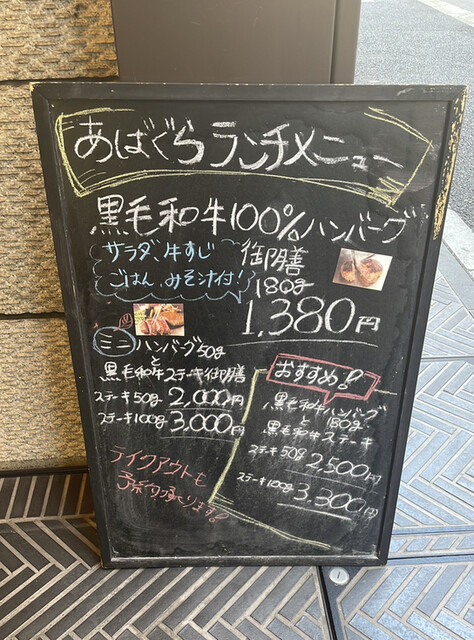 あばぐらランチメニュー
黒毛和牛100%ハンバーグ
御膳
サラダ、牛すじ
ごはん、みそ汁付!
180g
1,380円
ミニハンバーグ50g
と
黒毛和牛ステーキ御膳
ステーキ50g 2,000円
ステーキ100g 3,000円
おすすめ!!
黒毛和牛ハンバーグ
180g
と
黒毛和牛ステーキ
ステーキ50g
2,500円
ステーキ100g
3,300円
テイクアウトも
予約承ります!